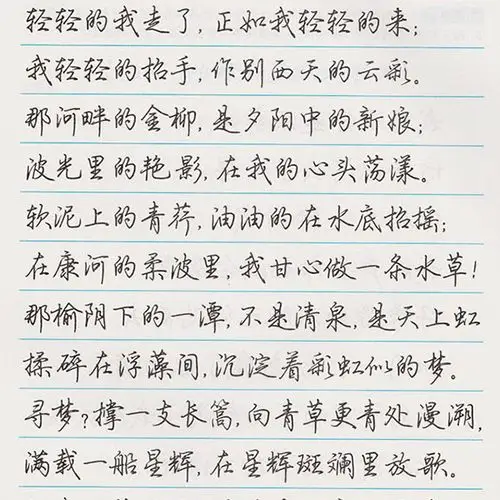 轻轻的我走了，正如我轻轻的来；
我轻轻的招手，作别西天的云彩。
那河畔的金柳，是夕阳中的新娘；
波光里的艳影，在我的心头荡漾。
软泥上的青荇，油油的在水底招摇；
在康河的柔波里，我甘心做一条水草！
那榆阴下的一潭，不是清泉，是天上虹
揉碎在浮藻间，沉淀着彩虹似的梦。
寻梦？撑一支长篙，向青草更青处漫溯，
满载一船星辉，在星辉斑斓里放歌。